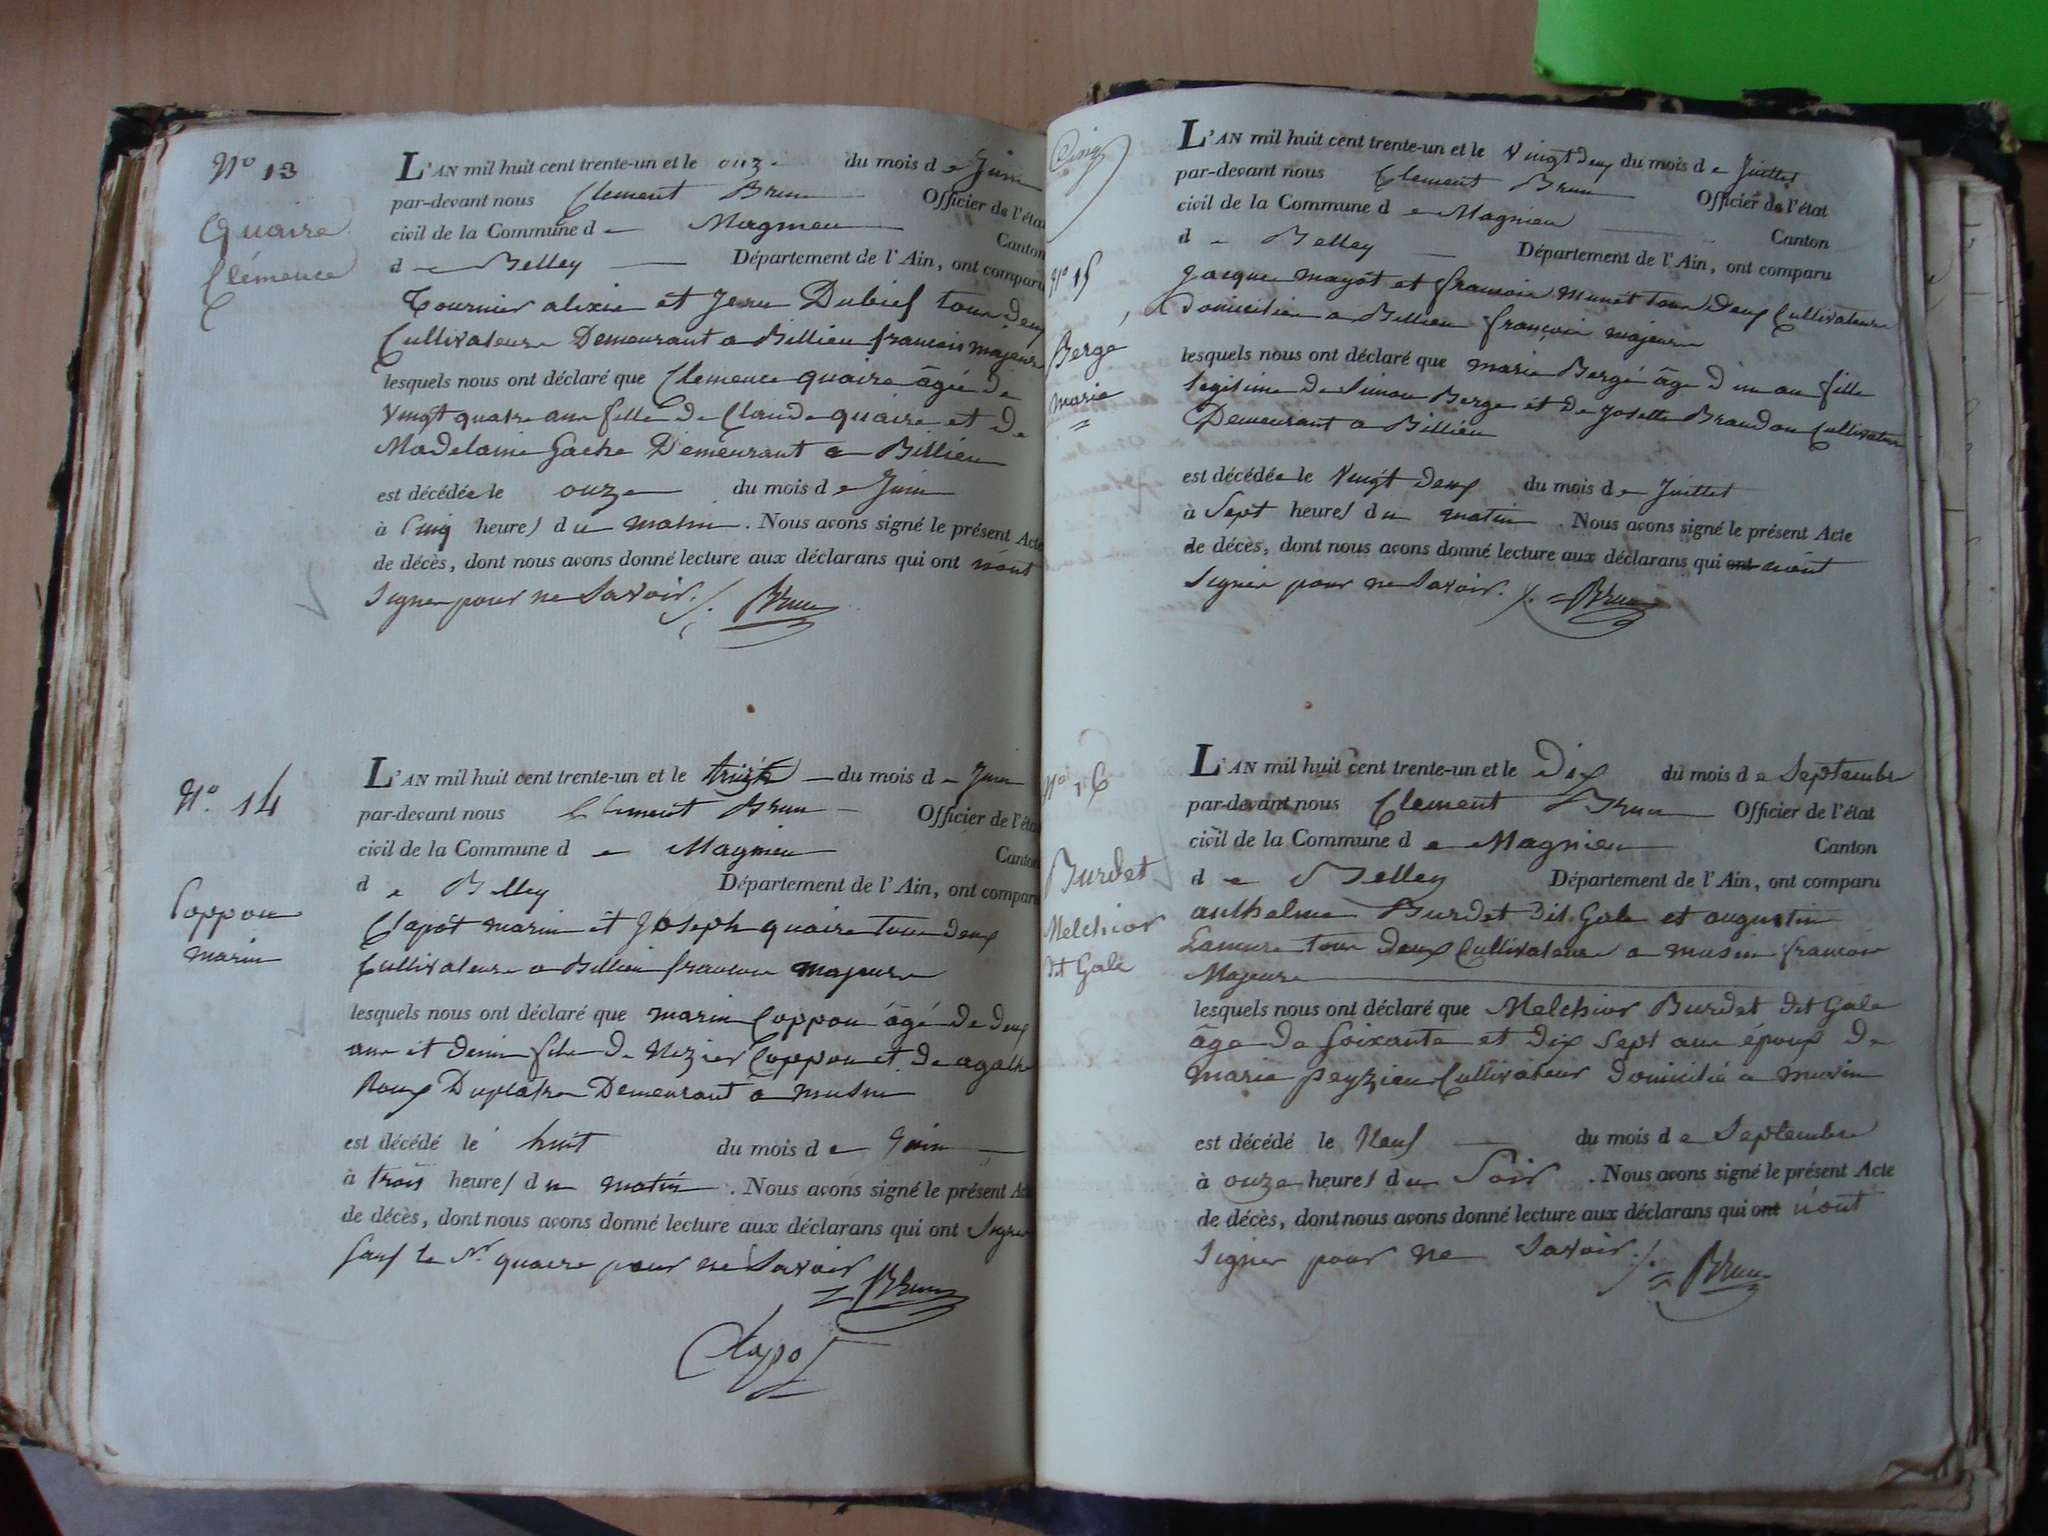 N.º 13
Quaire
Clémence
L'AN mil huit cent trente-un et le onze du mois de Juin
par-devant nous Clement Brun Officier de l'état
civil de la Commune de Magnieu Canton
de Belley Département de l'Ain, ont comparu
Tournier alixie et Jean Dubief tous deux
Cultivateurs Demeurant a Billieu francois majeurs
lesquels nous ont déclaré que Clemence quaire âgée de
Vingt quatre ans fille de Claude quaire et de
Madelaine Gache Demeurant a Billieu
est décédée le onze du mois de Juin
à Cinq heures du matin . Nous avons signé le présent Acte
de décès, dont nous avons donné lecture aux déclarans qui ont n'ont
Signer pour ne Savoir ./. Brun
N.º 14
Coppon
marin
L'AN mil huit cent trente-un et le du mois de Juin
par-devant nous Clement Brun Officier de l'état
civil de la Commune de Magnieu Canton
de Belley Département de l'Ain, ont comparu
Clapot marin et Joseph quaire tous deux
Cultivateurs a Billieu francois majeurs
lesquels nous ont déclaré que marin Coppon âgé de deux
ans et demi fils de Nizier Coppon et de agathe
Roux Duplatre Demeurant a musin
est décédé le huit du mois de Juin
à trois heures du matin . Nous avons signé le présent Acte
de décès, dont nous avons donné lecture aux déclarans qui ont Signer
Sauf le Sr quaire pour ne Savoir
Brun
Clapot
Cinq
N.º 15
Berge
marie
L'AN mil huit cent trente-un et le Vingt deux du mois de Juillet
par-devant nous Clement Brun Officier de l'état
civil de la Commune de Magnieu Canton
de Belley Département de l'Ain, ont comparu
Jacque mayot et francois munet tous deux Cultivateurs
domiciliés a Billieu françois majeurs
lesquels nous ont déclaré que marie Bergé âge d'un an fille
legitime de Simon Berge et de Josette Brandon Cultivateurs
Demeurant a Billieu
est décédée le Vingt deux du mois de Juillet
à Sept heures du matin . Nous avons signé le présent Acte
de décès, dont nous avons donné lecture aux déclarans qui ont n'ont
Signer pour ne Savoir ./. Brun
N.º 16
Burdet
Melchior
dit Gale
L'AN mil huit cent trente-un et le Dix du mois de Septembre
par-devant nous Clement Brun Officier de l'état
civil de la Commune de Magnieu Canton
de Belley Département de l'Ain, ont comparu
anthelme Burdet dit Gale et augustin
Lamure tous deux Cultivateurs a musin francois
Majeurs
lesquels nous ont déclaré que Melchior Burdet dit Gale
âge de Soixante et dix Sept ans époux de
marie peyzieu Cultivateur domicilié a musin
est décédé le Neuf du mois de Septembre
à onze heures du Soir . Nous avons signé le présent Acte
de décès, dont nous avons donné lecture aux déclarans qui ont n'ont
Signer pour ne Savoir ./. Brun